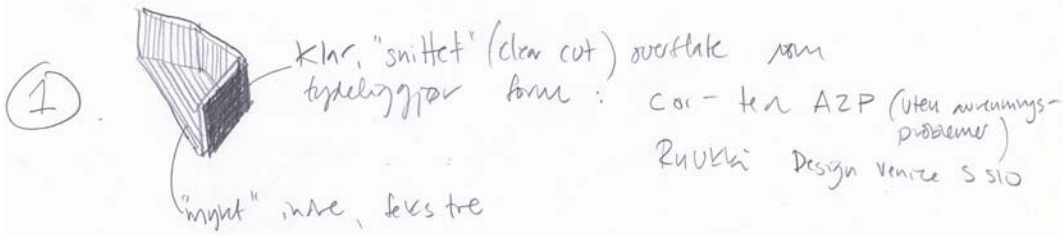 1.
Klar, "snittet" (clear cut) overflate som
tydeliggjør form :
cor-ten AZP (uten avrennings-
problemer)
Ruukki Design Venice S S10
"mykt" indre, feks tre